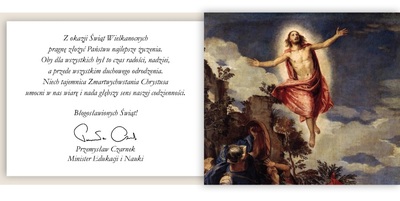 Z okazji Świąt Wielkanocnych
pragnę złożyć Państwu najlepsze życzenia.
Oby dla wszystkich był to czas radości, nadziei,
a przede wszystkim duchowego odrodzenia.
Niech tajemnica Zmartwychwstania Chrystusa
umocni w nas wiarę i nada głębszy sens naszej codzienności.
Błogosławionych Świąt!
Przemysław Czarnek
Minister Edukacji i Nauki